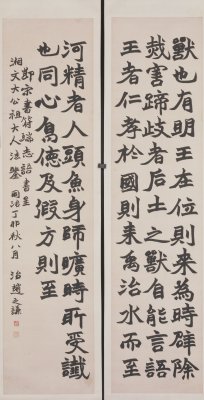 獸也有明王在位則來為時辟除
烖害蹏歧者后土之獸自能言語
王者仁孝於國則來禹治水而至
河精者人頭魚身師曠時所受讖
也同心鳥德及假方則至
節宋書符瑞志語書呈
湘文大公祖大人法鑒 同治丁卯秋八月 治趙之謙